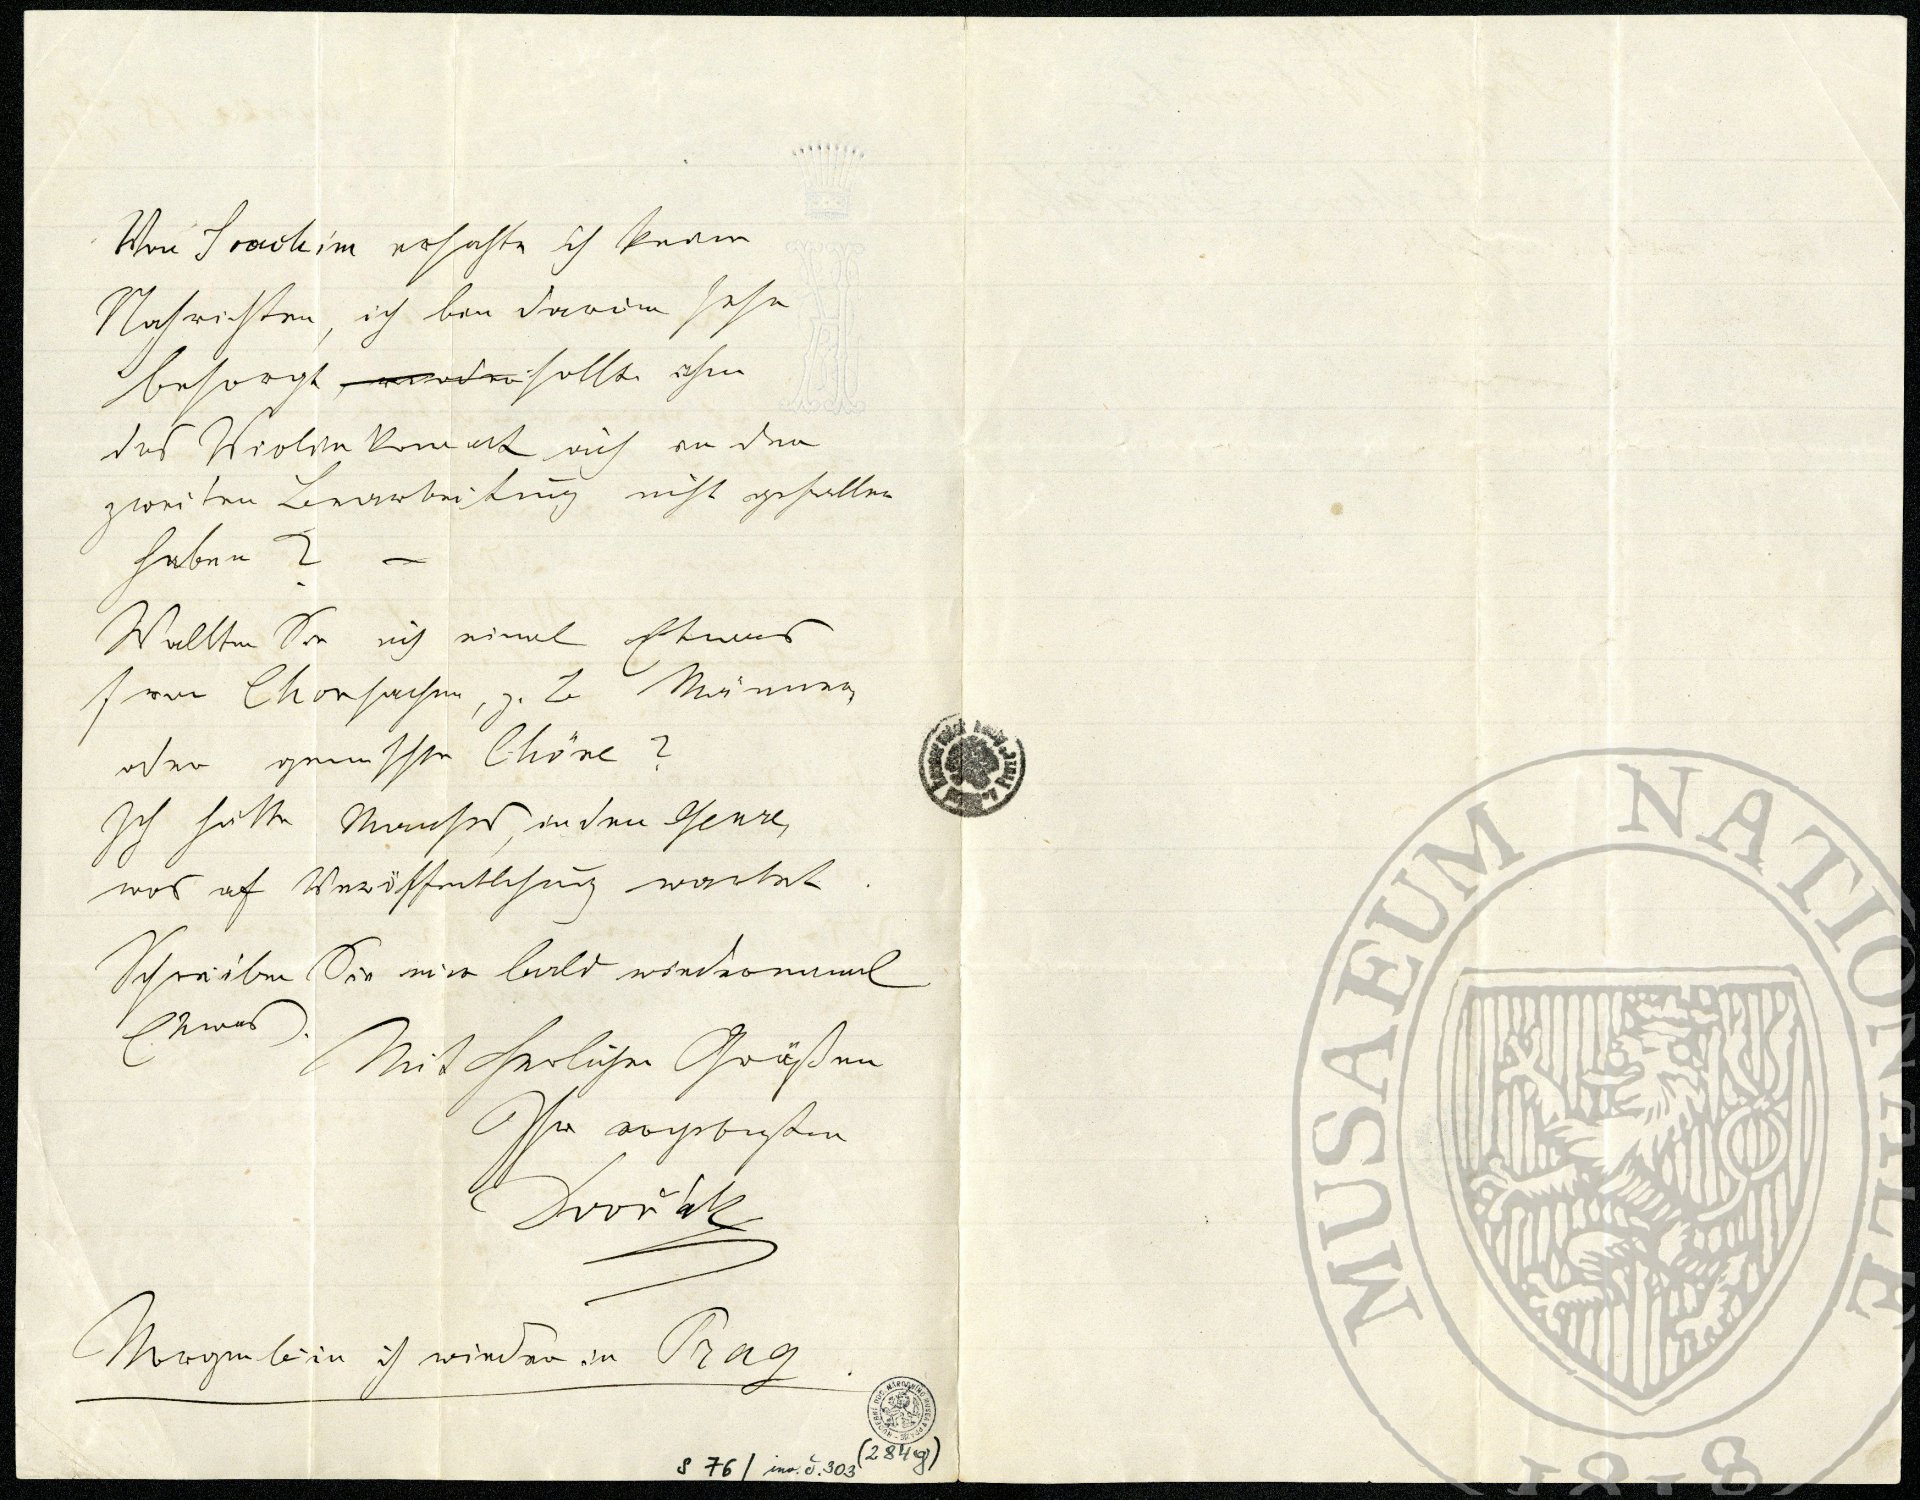 Von Joachim erhalte ich keine
Nachrichten, ich bin darum sehr
besorgt, sollte ihm
das Violinkonzert auch in der
zweiten Bearbeitung nicht gefallen
haben? —
Wollten Sie nicht einmal Etwas
von Chorsachen, z. B. Männer,
oder gemischte Chöre?
Ich hätte Manches, in dem Genre,
was auf Veröffentlichung wartet.
Schreiben Sie mir bald wiedereinmal
Etwas.
Mit herzlichen Grüßen
Ihr ergebenster
Dvořák
Morgen bin ich wieder in Prag.
S 76/ inv. č. 303 (284g)
MUSAEUM NATIONALE
1818